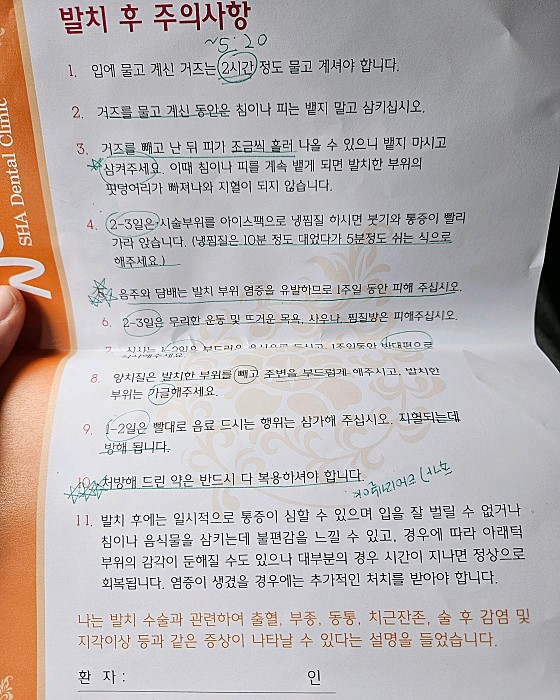 발치 후 주의사항
~5:20
1. 입에 물고 계신 거즈는 2시간 정도 물고 계셔야 합니다.
2. 거즈를 물고 계신 동안은 침이나 피는 뱉지 말고 삼키십시오.
3. 거즈를 빼고 난 뒤 피가 조금씩 흘러 나올 수 있으니 뱉지 마시고
삼켜주세요. 이때 침이나 피를 계속 뱉게 되면 발치한 부위의
핏덩어리가 빠져나와 지혈이 되지 않습니다.
4. 2-3일은 시술부위를 아이스팩으로 냉찜질 하시면 붓기와 통증이 빨리
가라 앉습니다. (냉찜질은 10분 정도 대었다가 5분정도 쉬는 식으로
해주세요.)
5. 음주와 담배는 발치 부위 염증을 유발하므로 1주일 동안 피해 주십시오.
6. 2-3일은 무리한 운동 및 뜨거운 목욕, 사우나, 찜질방은 피해주십시오.
7. 식사는 1-2일은 부드러운 음식으로 드시고, 1주일동안 반대편으로
식사해주세요.
8. 양치질은 발치한 부위를 빼고 주변을 부드럽게 해주시고, 발치한
부위는 가글해주세요.
9. 1-2일은 빨대로 음료 드시는 행위는 삼가해 주십시오. 지혈되는데
방해 됩니다.
10. 처방해 드린 약은 반드시 다 복용하셔야 합니다.
11. 발치 후에는 일시적으로 통증이 심할 수 있으며 입을 잘 벌릴 수 없거나
침이나 음식물을 삼키는데 불편감을 느낄 수 있고, 경우에 따라 아래턱
부위의 감각이 둔해질 수도 있으나 대부분의 경우 시간이 지나면 정상으로
회복됩니다. 염증이 생겼을 경우에는 추가적인 처치를 받아야 합니다.
나는 발치 수술과 관련하여 출혈, 부종, 동통, 치근잔존, 술 후 감염 및
지각이상 등과 같은 증상이 나타날 수 있다는 설명을 들었습니다.
환 자 : 인
SHA Dental Clinic